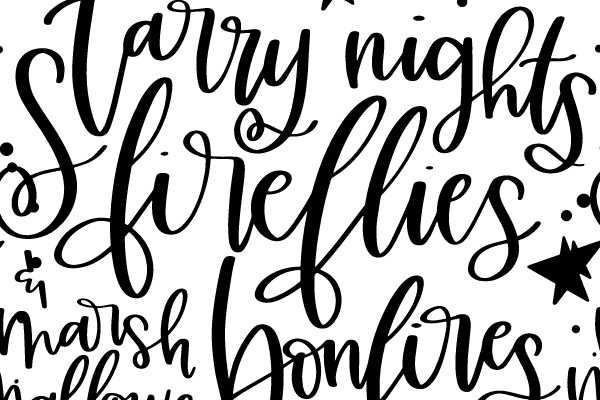 Starry nights
fireflies
& bonfires
marsh
mallows